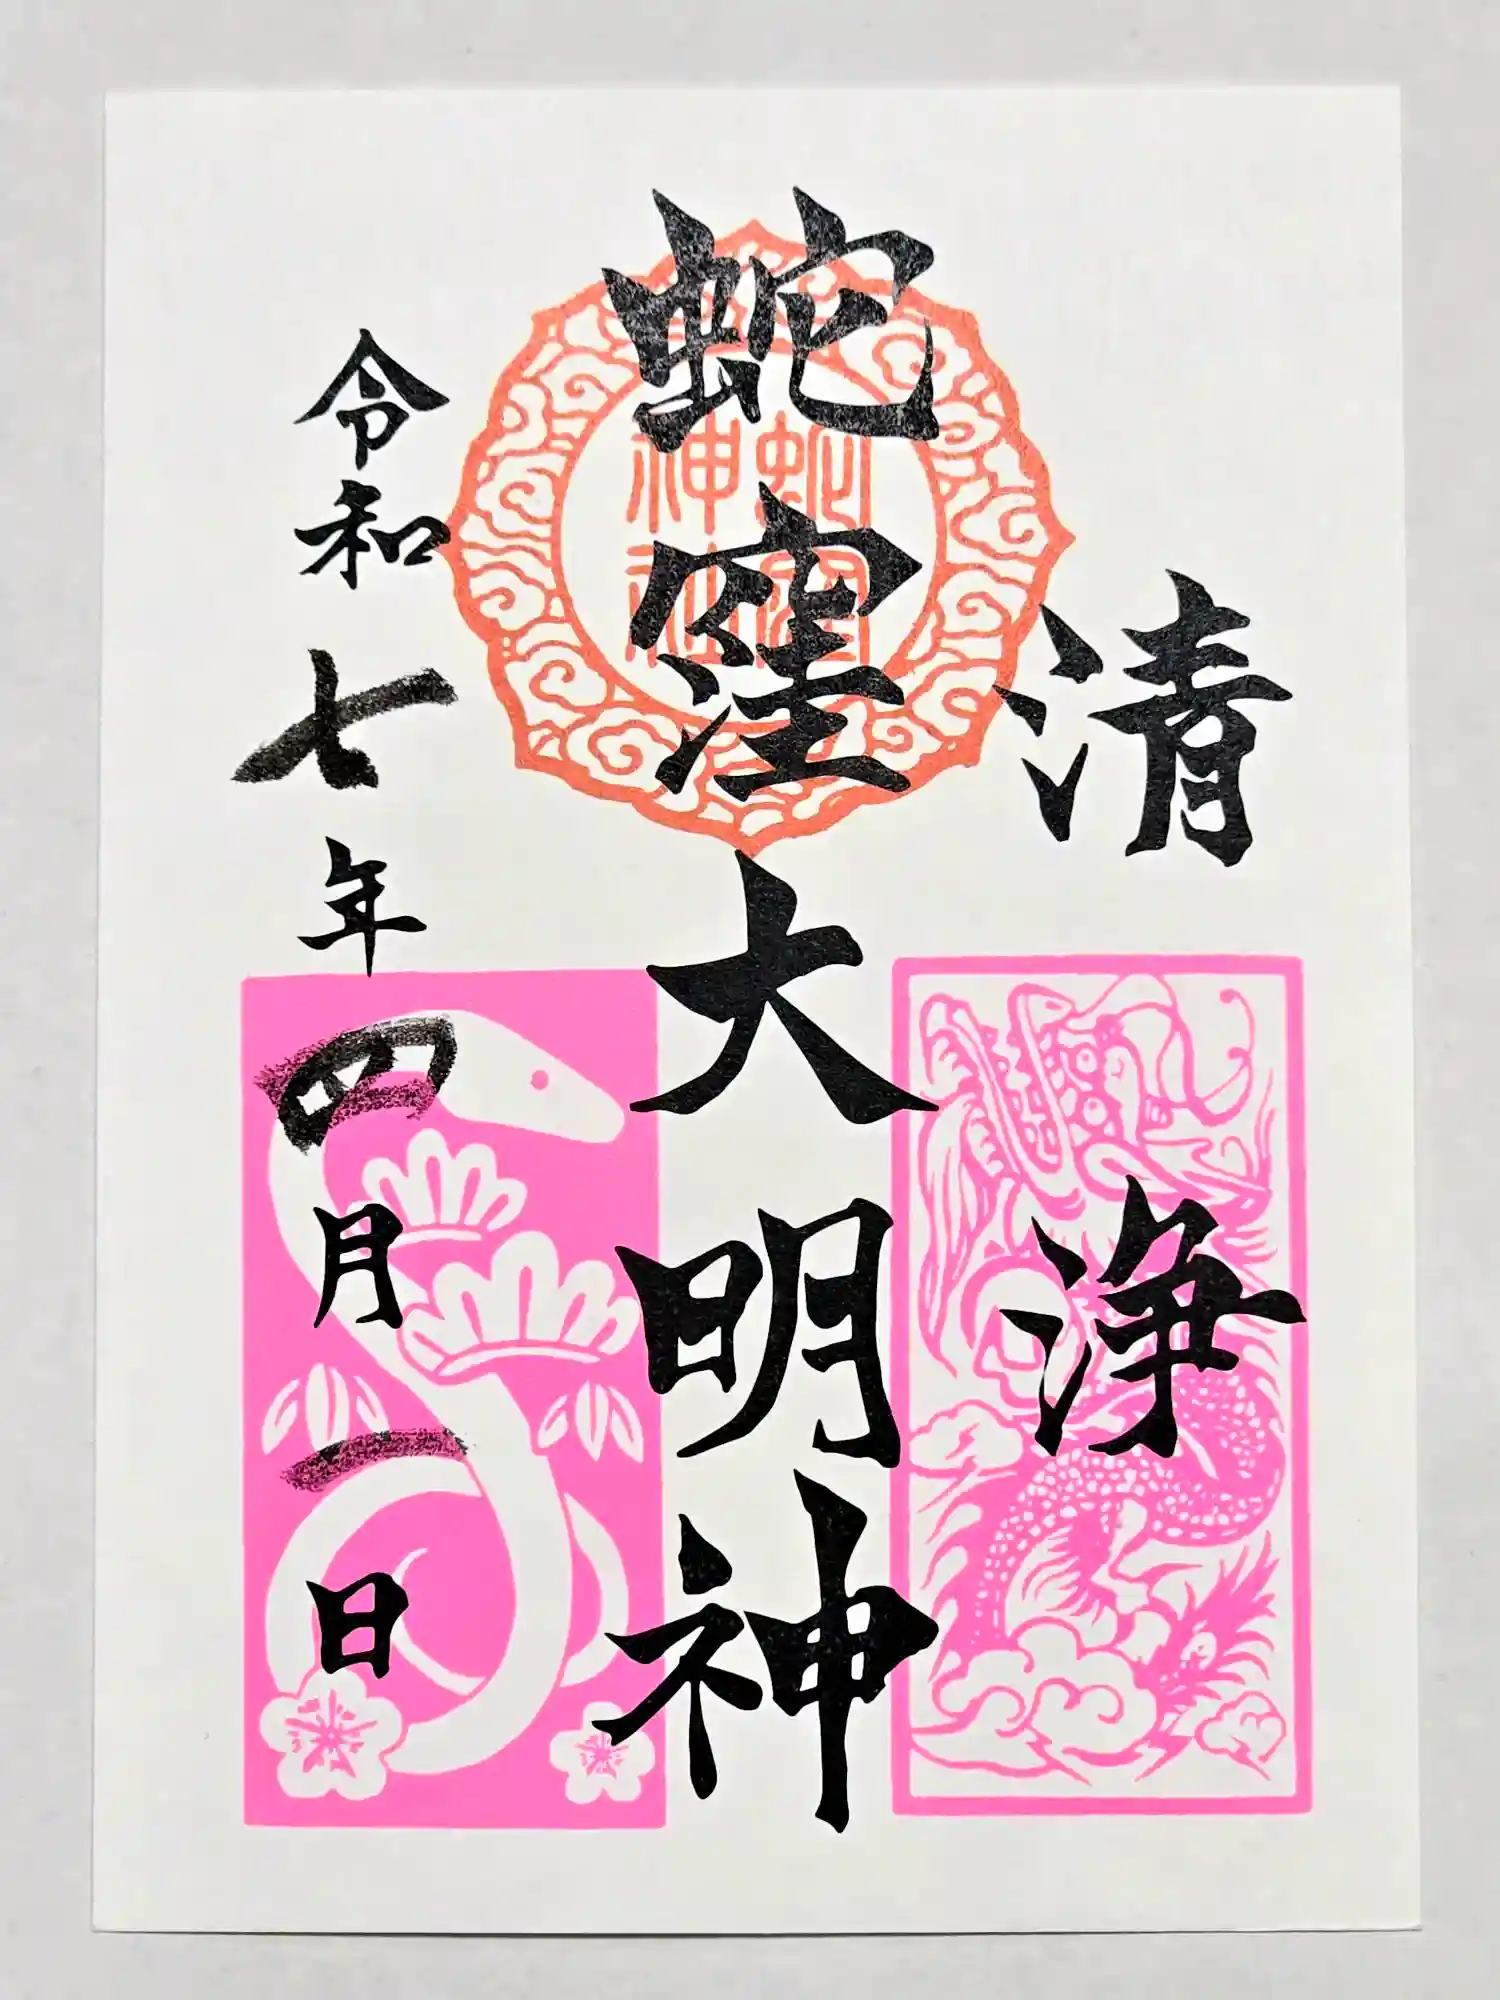 清浄
蛇窪大明神
蛇窪
神社
令和七年四月一日